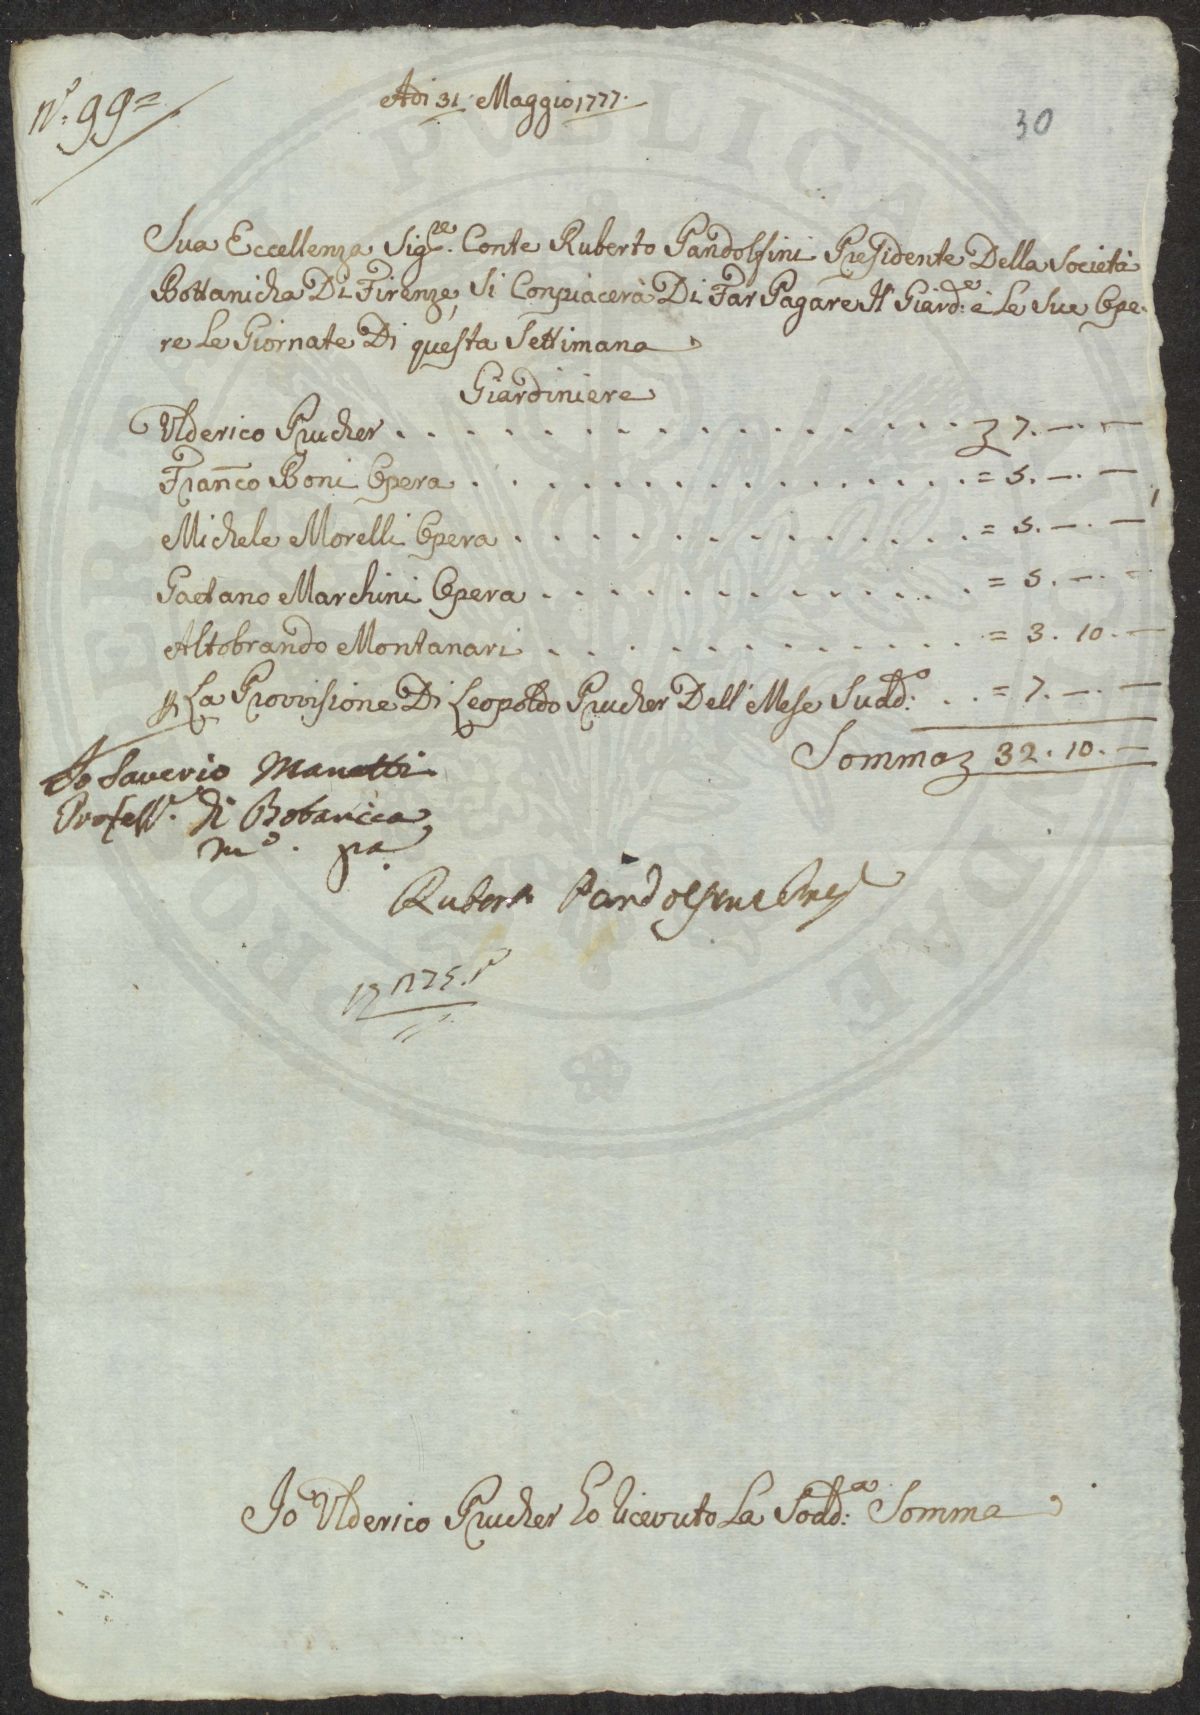 N.° 99=
Adi 31 Maggio 1777.
30
Sua Eccellenza Sig.re Conte Ruberto Pandolfini Presidente Della Società
Bottanicha Di Firenze, Si Conpiacerà Di Far Pagare Il Giard.e e Le Sue Ope-
re Le Giornate Di questa Settimana
Giardiniere
Ulderico Prucher . . . . . . . . . . . . . . . . . . 7. —. —
Fran̄co Boni Opera . . . . . . . . . . . . . . . . = 5. —. —
Michele Morelli Opera . . . . . . . . . . . . . . = 5. —. —
Gaetano Marchini Opera . . . . . . . . . . . . . = 5. —. —
Altobrando Montanari . . . . . . . . . . . . . = 3. 10. —
p. La Provvisione Di Leopoldo Prucher Dell' Mese Sudd.o . . = 7. —. —
Somma 32. 10. —
Io Saverio Manetti
Profess.re di Botanica
m.o pa
Ruberto Pandolfini Pres
Io Ulderico Prucher ho ricevuto La Sodd.a Somma
PROSPERITATI PUBLICAE